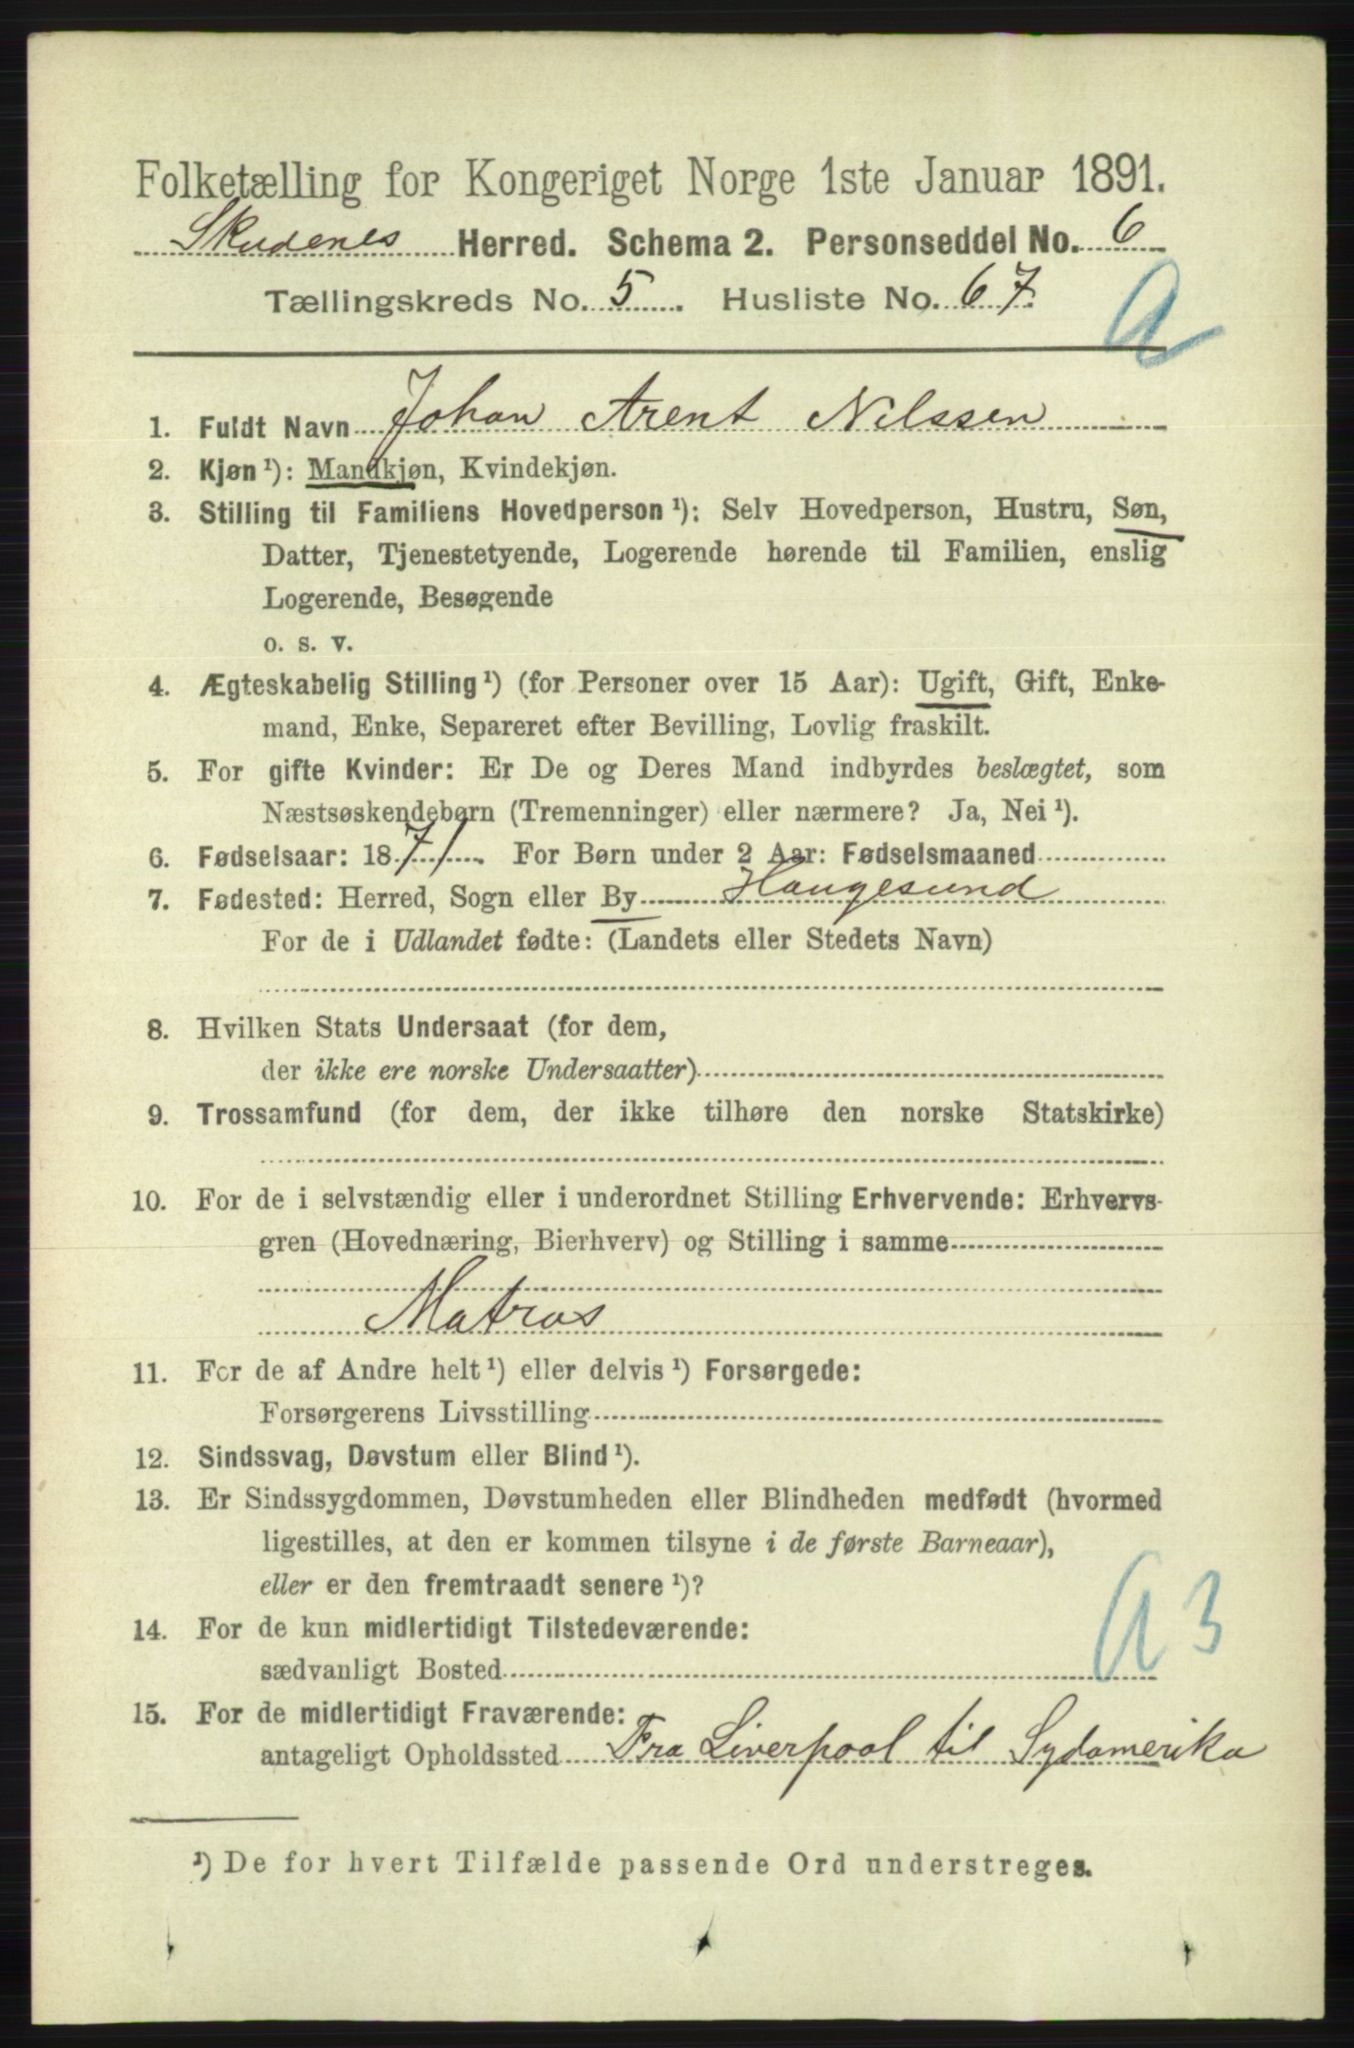 Folketælling for Kongeriget Norge 1ste Januar 1891.
Skudenes Herred. Schema 2. Personseddel No. 6
Tællingskreds No. 5. Husliste No. 67.
a
1. Fuldt Navn Johan Arent Nilssen
2. Kjøn ¹): Mandkjøn, Kvindekjøn.
3. Stilling til Familiens Hovedperson ¹): Selv Hovedperson, Hustru, Søn,
Datter, Tjenestetyende, Logerende hørende til Familien, enslig
Logerende, Besøgende
o. s. v.
4. Ægteskabelig Stilling ¹) (for Personer over 15 Aar): Ugift, Gift, Enke-
mand, Enke, Separeret efter Bevilling, Lovlig fraskilt.
5. For gifte Kvinder: Er De og Deres Mand indbyrdes beslægtet, som
Næstsøskendebørn (Tremenninger) eller nærmere? Ja, Nei ¹).
6. Fødselsaar: 1871. For Børn under 2 Aar: Fødselsmaaned
7. Fødested: Herred, Sogn eller By Haugesund
For de i Udlandet fødte: (Landets eller Stedets Navn)
8. Hvilken Stats Undersaat (for dem,
der ikke ere norske Undersaatter)
9. Trossamfund (for dem, der ikke tilhøre den norske Statskirke)
10. For de i selvstændig eller i underordnet Stilling Erhvervende: Erhvervs-
gren (Hovednæring, Bierhverv) og Stilling i samme
Matros
11. For de af Andre helt ¹) eller delvis ¹) Forsørgede:
Forsørgerens Livsstilling
12. Sindssvag, Døvstum eller Blind ¹).
13. Er Sindssygdommen, Døvstumheden eller Blindheden medfødt (hvormed
ligestilles, at den er kommen tilsyne i de første Barneaar),
eller er den fremtraadt senere ¹)?
14. For de kun midlertidigt Tilstedeværende:
sædvanligt Bosted
a 3
15. For de midlertidigt Fraværende:
antageligt Opholdssted Fra Liverpool til Sydamerika
¹) De for hvert Tilfælde passende Ord understreges.